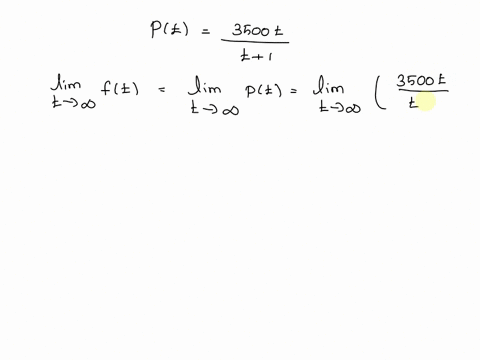 P(t) = 3500t / t+1
lim t→∞ f(t) = lim t→∞ p(t) = lim t→∞ ( 3500t / t